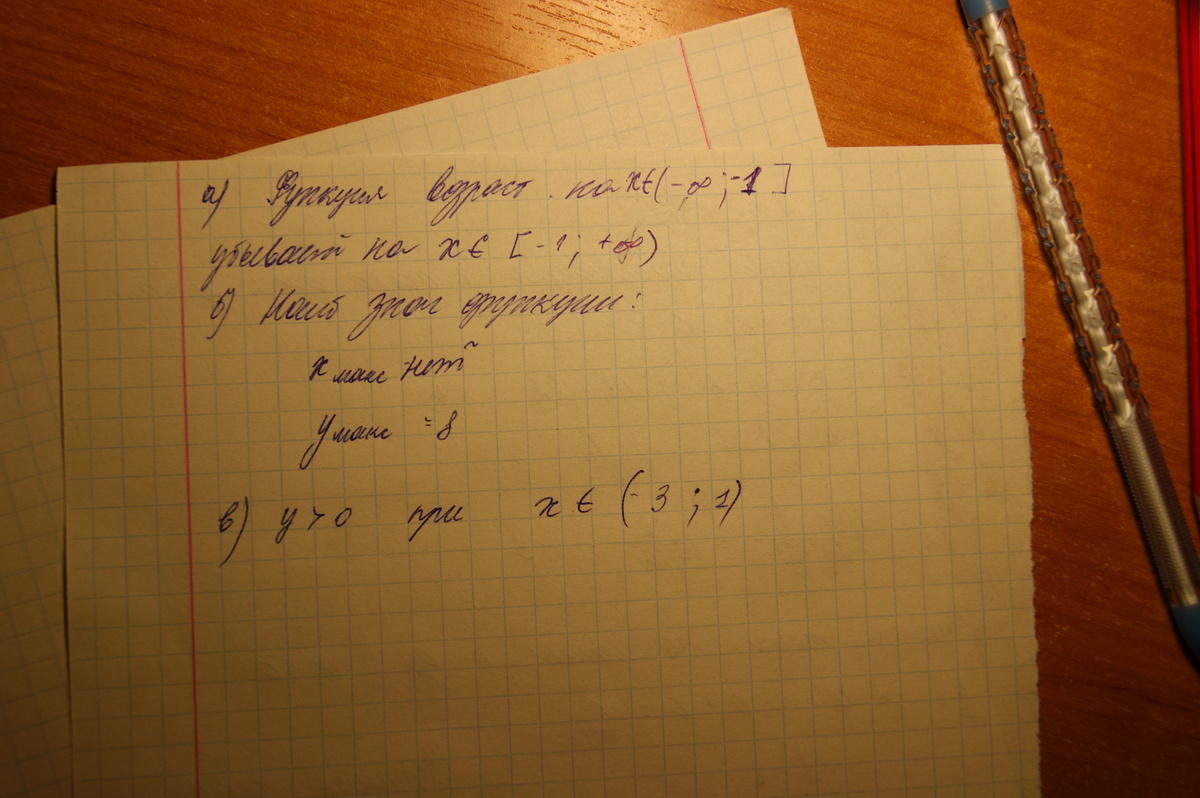 а) Функция возраст. на x∈(-∞;-1]
убывает на x∈[-1;+∞)
б) Наиб знач функции:
x макс нет
y макс = 8
в) y>0 при x∈(-3;1)